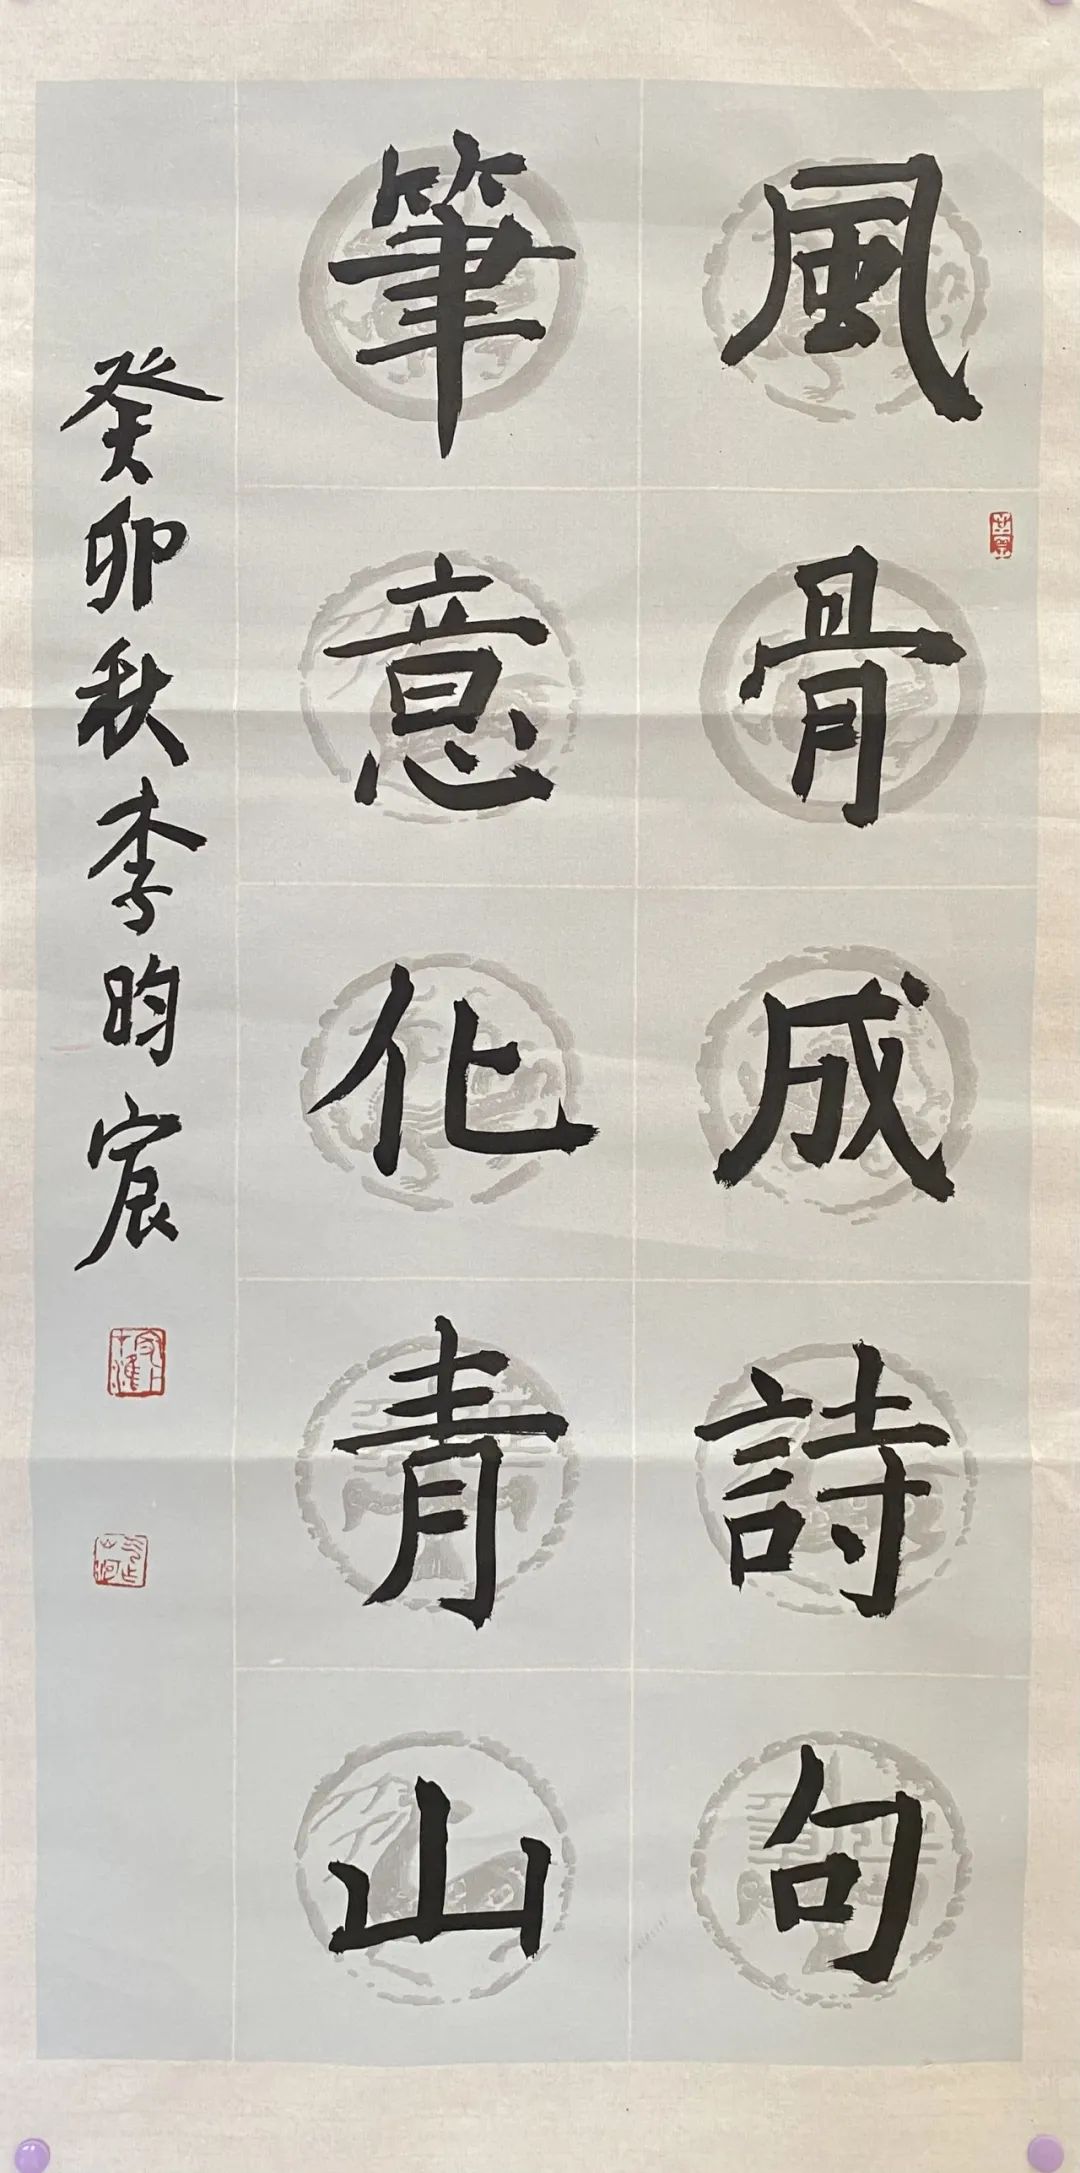 風骨成詩句
筆意化青山
癸卯秋李昀宸